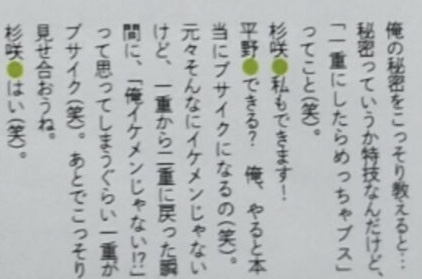 俺の秘密をこっそり教えると…
秘密っていうか特技なんだけど、
「一重にしたらめっちゃブス」
ってこと(笑)。
杉咲●私もできます！
平野●できる？　俺、やると本
当にブサイクになるの(笑)。
元々そんなにイケメンじゃない
けど、一重から二重に戻った瞬
間に、「俺イケメンじゃない!?」
って思ってしまうぐらい一重が
ブサイク(笑)。あとでこっそり
見せ合おうね。
杉咲●はい(笑)。